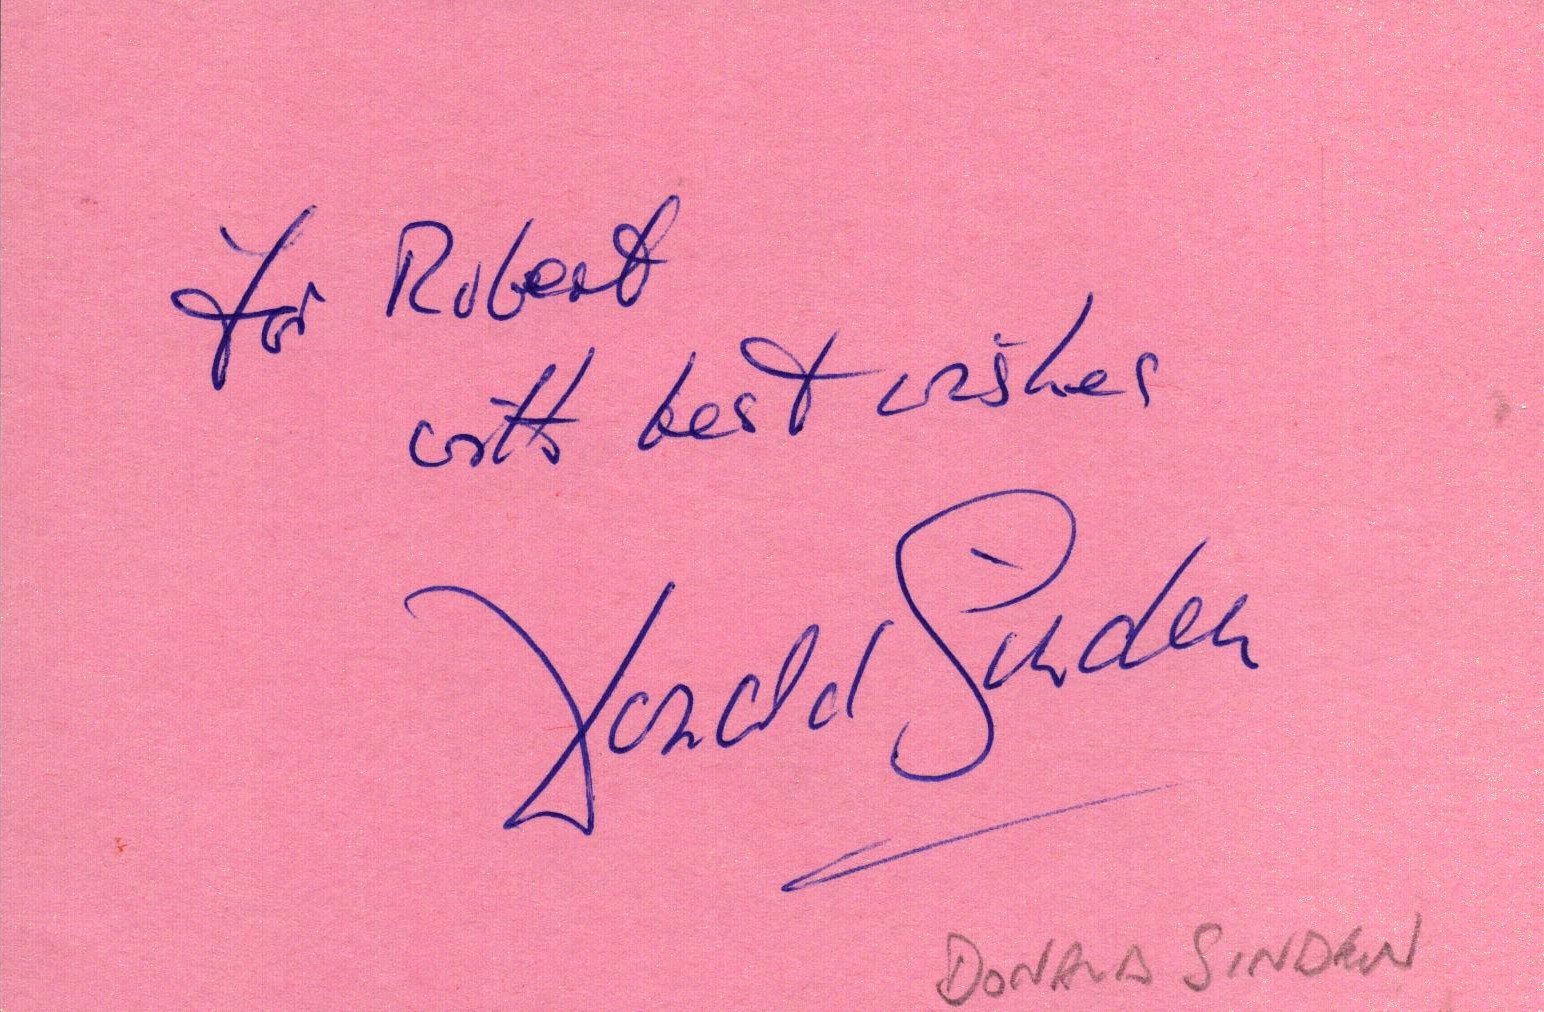 For Robert
with best wishes
Donald Sinden
DONALD SINDEN